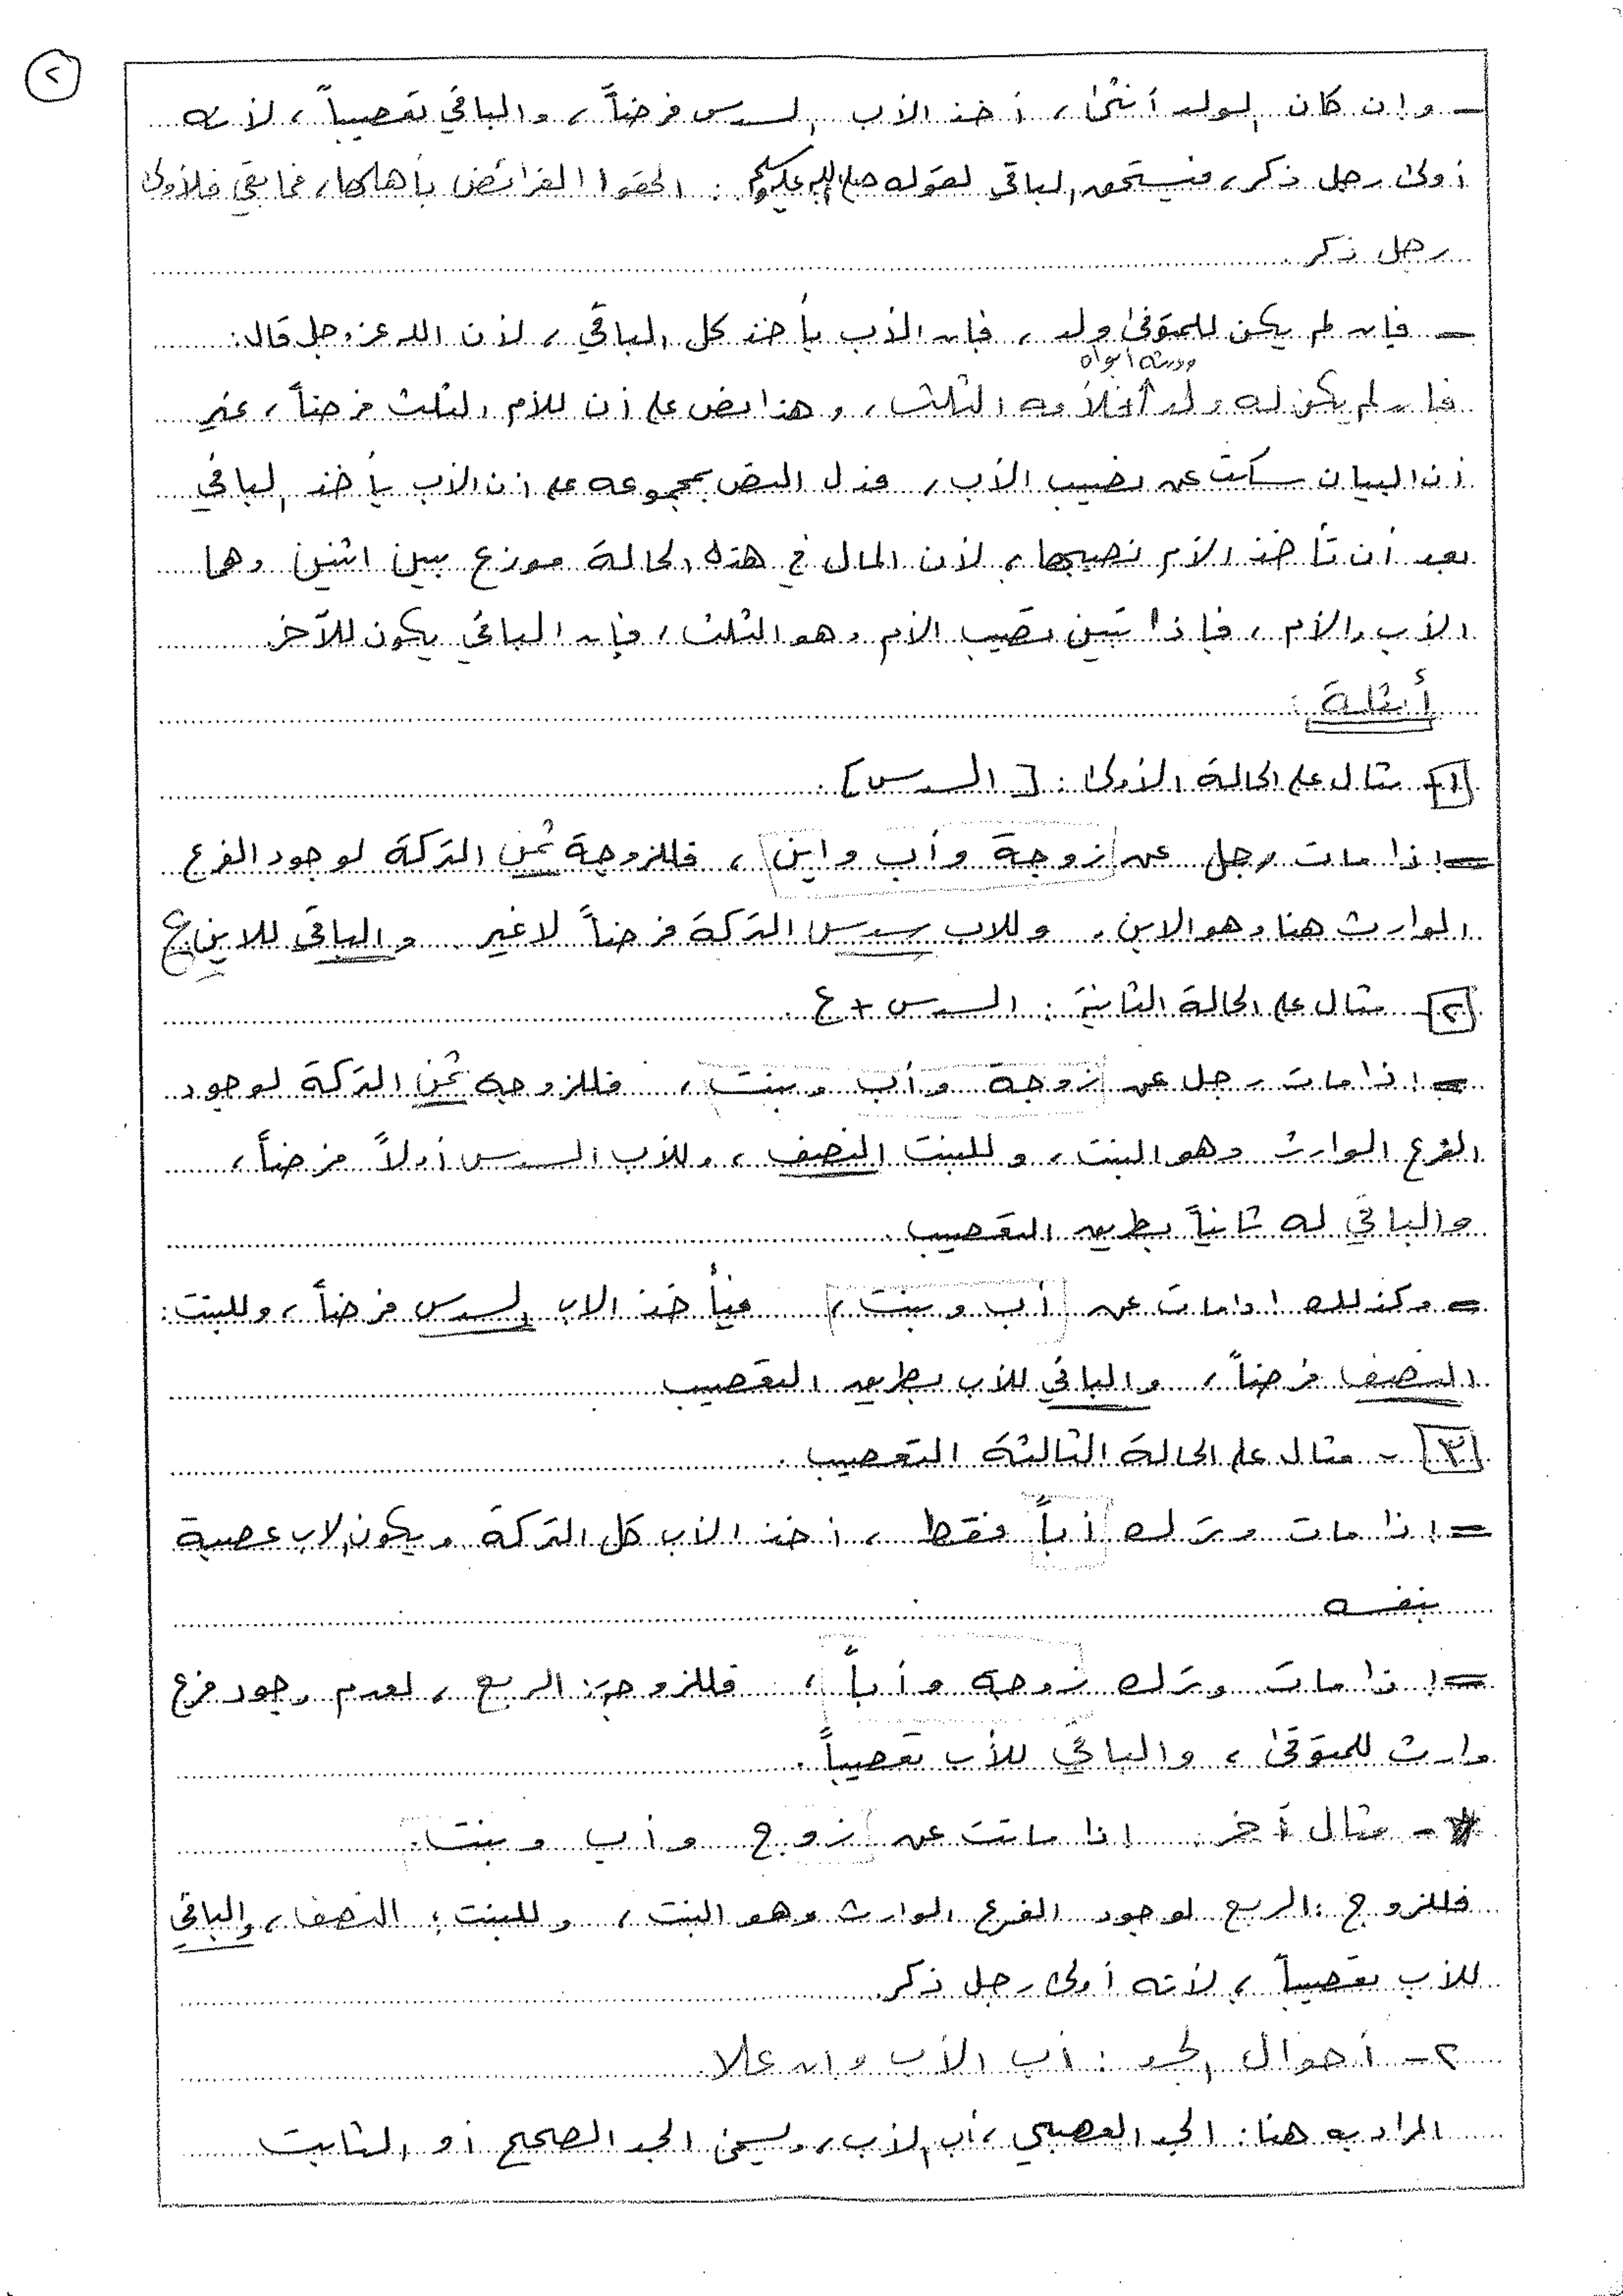 ٢
- وإن كان الولد أنثى، أخذ الأب السدس فرضاً، والباقي تعصيباً، لأنه
أولى رجل ذكر، فيستحق الباقي لقوله صلى الله عليه وسلم: الحقوا الفرائض بأهلها، فما بقي فلأولى
رجل ذكر.
- فإن لم يكن للمتوفى ولد، فإن الأب يأخذ كل الباقي، لأن الله عز وجل قال:
وورثه أبواه
فإن لم يكن له ولد فلأمه الثلث، وهذا نص على أن للأم الثلث فرضاً، غير
أن البيان سكت عن نصيب الأب، فدل النص بمجموعه على أن الأب يأخذ الباقي
بعد أن تأخذ الأم نصيبها، لأن المال في هذه الحالة موزع بين اثنين وهما
الأب والأم، فإذا تبين نصيب الأم وهو الثلث، فإن الباقي يكون للآخر.
أمثلة:
١- مثال على الحالة الأولى: [السدس].
= إذا مات رجل عن زوجة وأب وابن، فللزوجة ثمن التركة لوجود الفرع
الوارث هنا وهو الابن. وللاب سدس التركة فرضاً لا غير. والباقي للابن ع
٢- مثال على الحالة الثانية: السدس + ع.
= إذا مات رجل عن زوجة وأب وبنت، فللزوجة ثمن التركة لوجود
الفرع الوارث وهو البنت، وللبنت النصف، وللأب السدس أولاً فرضاً،
والباقي له ثانياً بطريق التعصيب.
= وكذلك اذا مات عن أب وبنت، فيأخذ الاب السدس فرضاً، وللبنت:
النصف فرضاً، والباقي للأب بطريق التعصيب
٣- مثال على الحالة الثالثة التعصيب.
= إذا مات وترك أباً فقط، أخذ الأب كل التركة ويكون الاب عصبة
بنفسه
= إذا مات وترك زوجة وأباً، فللزوجة: الربع، لعدم وجود فرع
وارث للمتوفى، والباقي للأب تعصيباً.
* - مثال آخر: اذا ماتت عن زوج وأب وبنت.
فللزوج: الربع لوجود الفرع الوارث وهو البنت، وللبنت: النصف، والباقي
للأب تعصيباً، لأنه أولى رجل ذكر.
٢- أحوال الجد: أب الأب وإن علا.
المراد به هنا: الجد العصبي، أب الأب، ويسمى الجد الصحيح أو الثابت